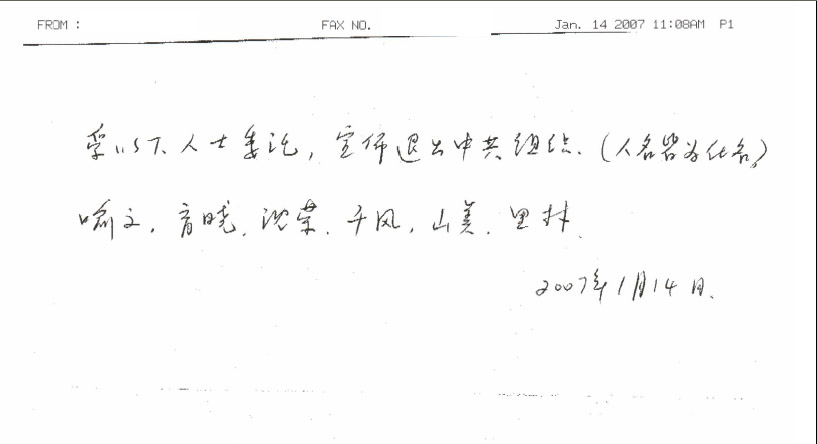 FROM : FAX NO. Jan. 14 2007 11:08AM P1
受以下人士委讬，宣布退出中共组织.（人名皆为化名）
喻文，育晓，沈荣，千风，山美，里林.
2007年1月14日.